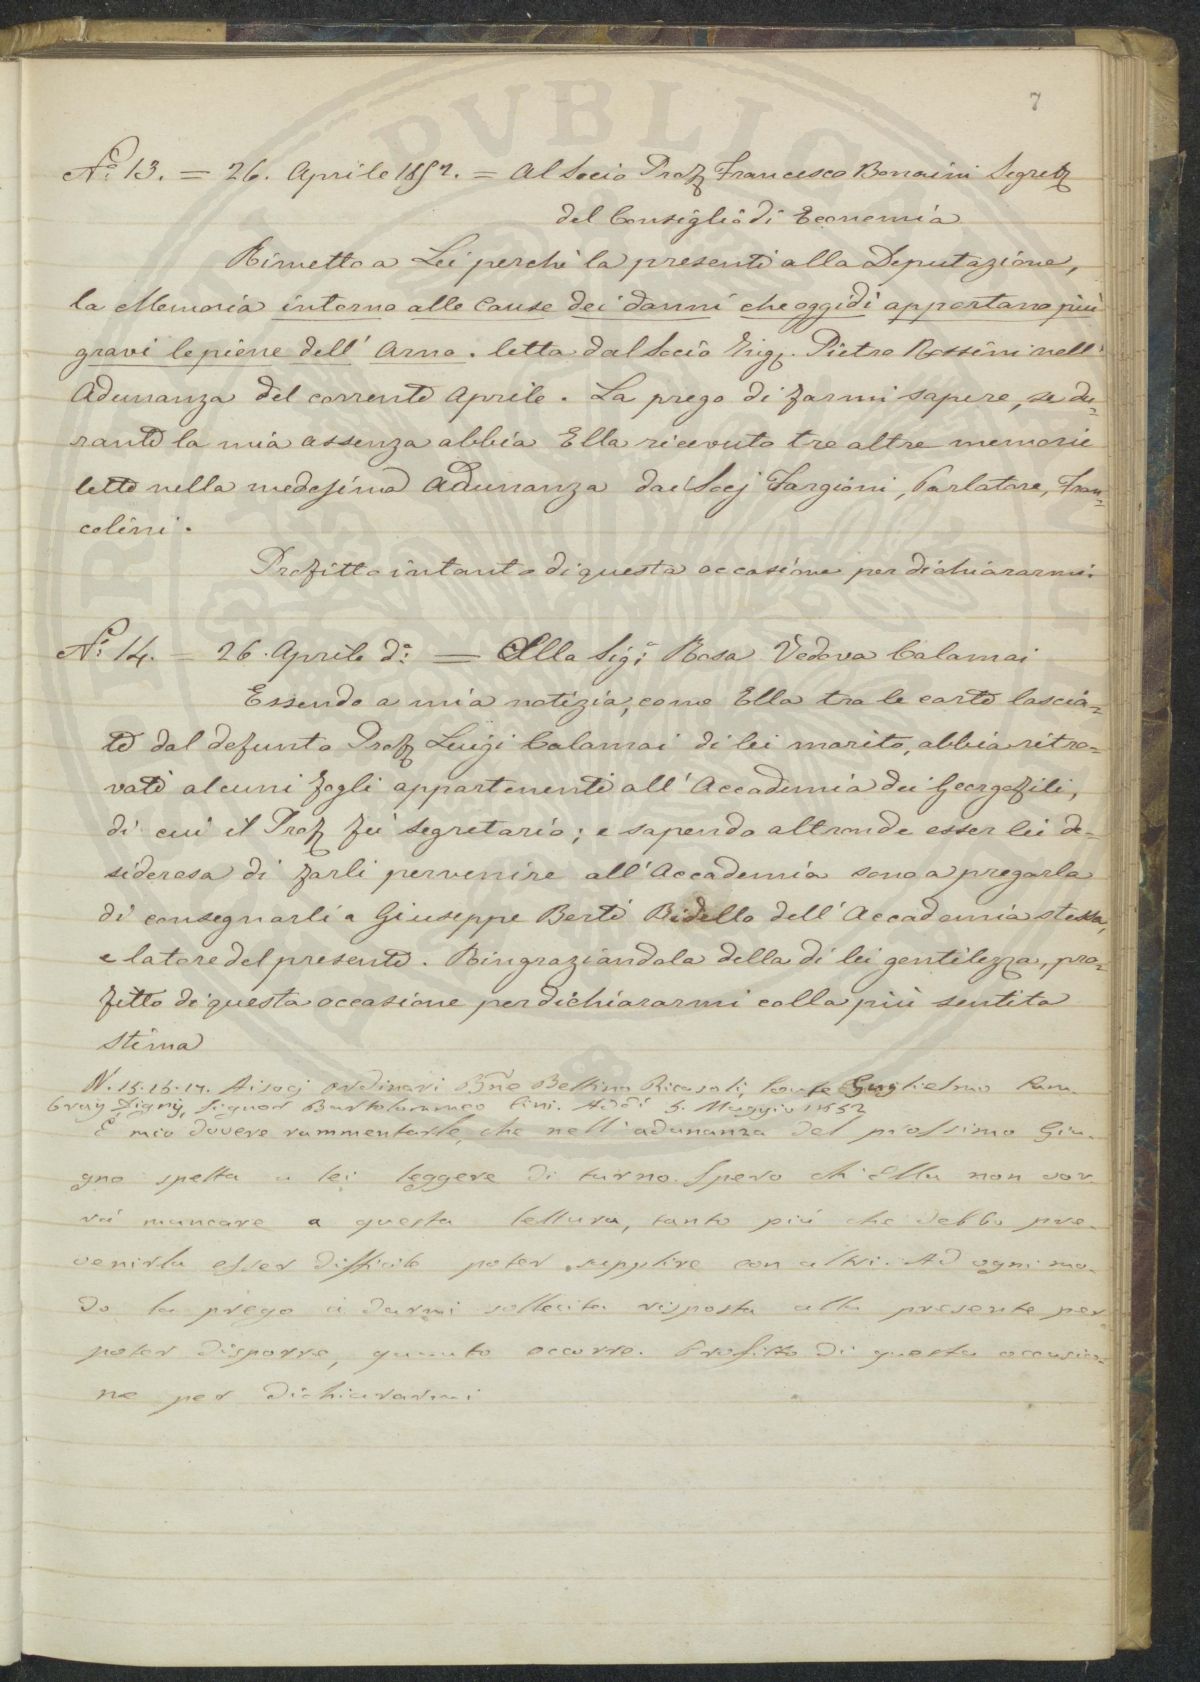 7
N.° 13. = 26. Aprile 1852. = Al Socio Prof. Francesco Bonaini Segret.
del Consiglio di Economia
Rimetto a Lei perché la presenti alla Deputazione,
la Memoria intorno alle Cause dei danni che oggidì apportano più
gravi le piene dell' Arno. letta dal Socio Ing. Pietro Rossini nell'
Adunanza del corrente Aprile. La prego di farmi sapere, se du-
rante la mia assenza abbia Ella ricevuto tre altre memorie
lette nella medesima Adunanza dai Socj Targioni, Parlatore, Fran-
colini.
Profitto intanto di questa occasione per dichiararmi.
N.° 14. = 26. Aprile d.° = Alla Sig.a Rosa Vedova Calamai
Essendo a mia notizia, come Ella tra le carte lascia-
te dal defunto Prof. Luigi Calamai di lei marito, abbia ritro-
vati alcuni fogli appartenenti all' Accademia dei Georgofili,
di cui il Prof. fu segretario; e sapendo altronde esser lei de-
siderosa di farli pervenire all' Accademia sono a pregarla
di consegnarli a Giuseppe Berti Bidello dell' Accademia stessa,
e latore del presente. Ringraziandola della di lei gentilezza, pro-
fitto di questa occasione per dichiararmi colla più sentita
stima
N. 15. 16. 17. Ai socj ordinari B.ne Bettino Ricasoli, Conte Guglielmo Cam-
bray Digny, Signor Bartolommeo Cini. Addì 5. Maggio 1852
È mio dovere rammentarle, che nell' adunanza del prossimo Giu-
gno spetta a lei leggere di turno. Spero ch' Ella non vor-
rà mancare a questa lettura, tanto più che debbo pre-
venirla esser difficile poter supplire con altri. Ad ogni mo-
do la prego a darmi sollecita risposta alla presente per
poter disporre, quanto occorre. Profitto di questa occasio-
ne per dichiararmi